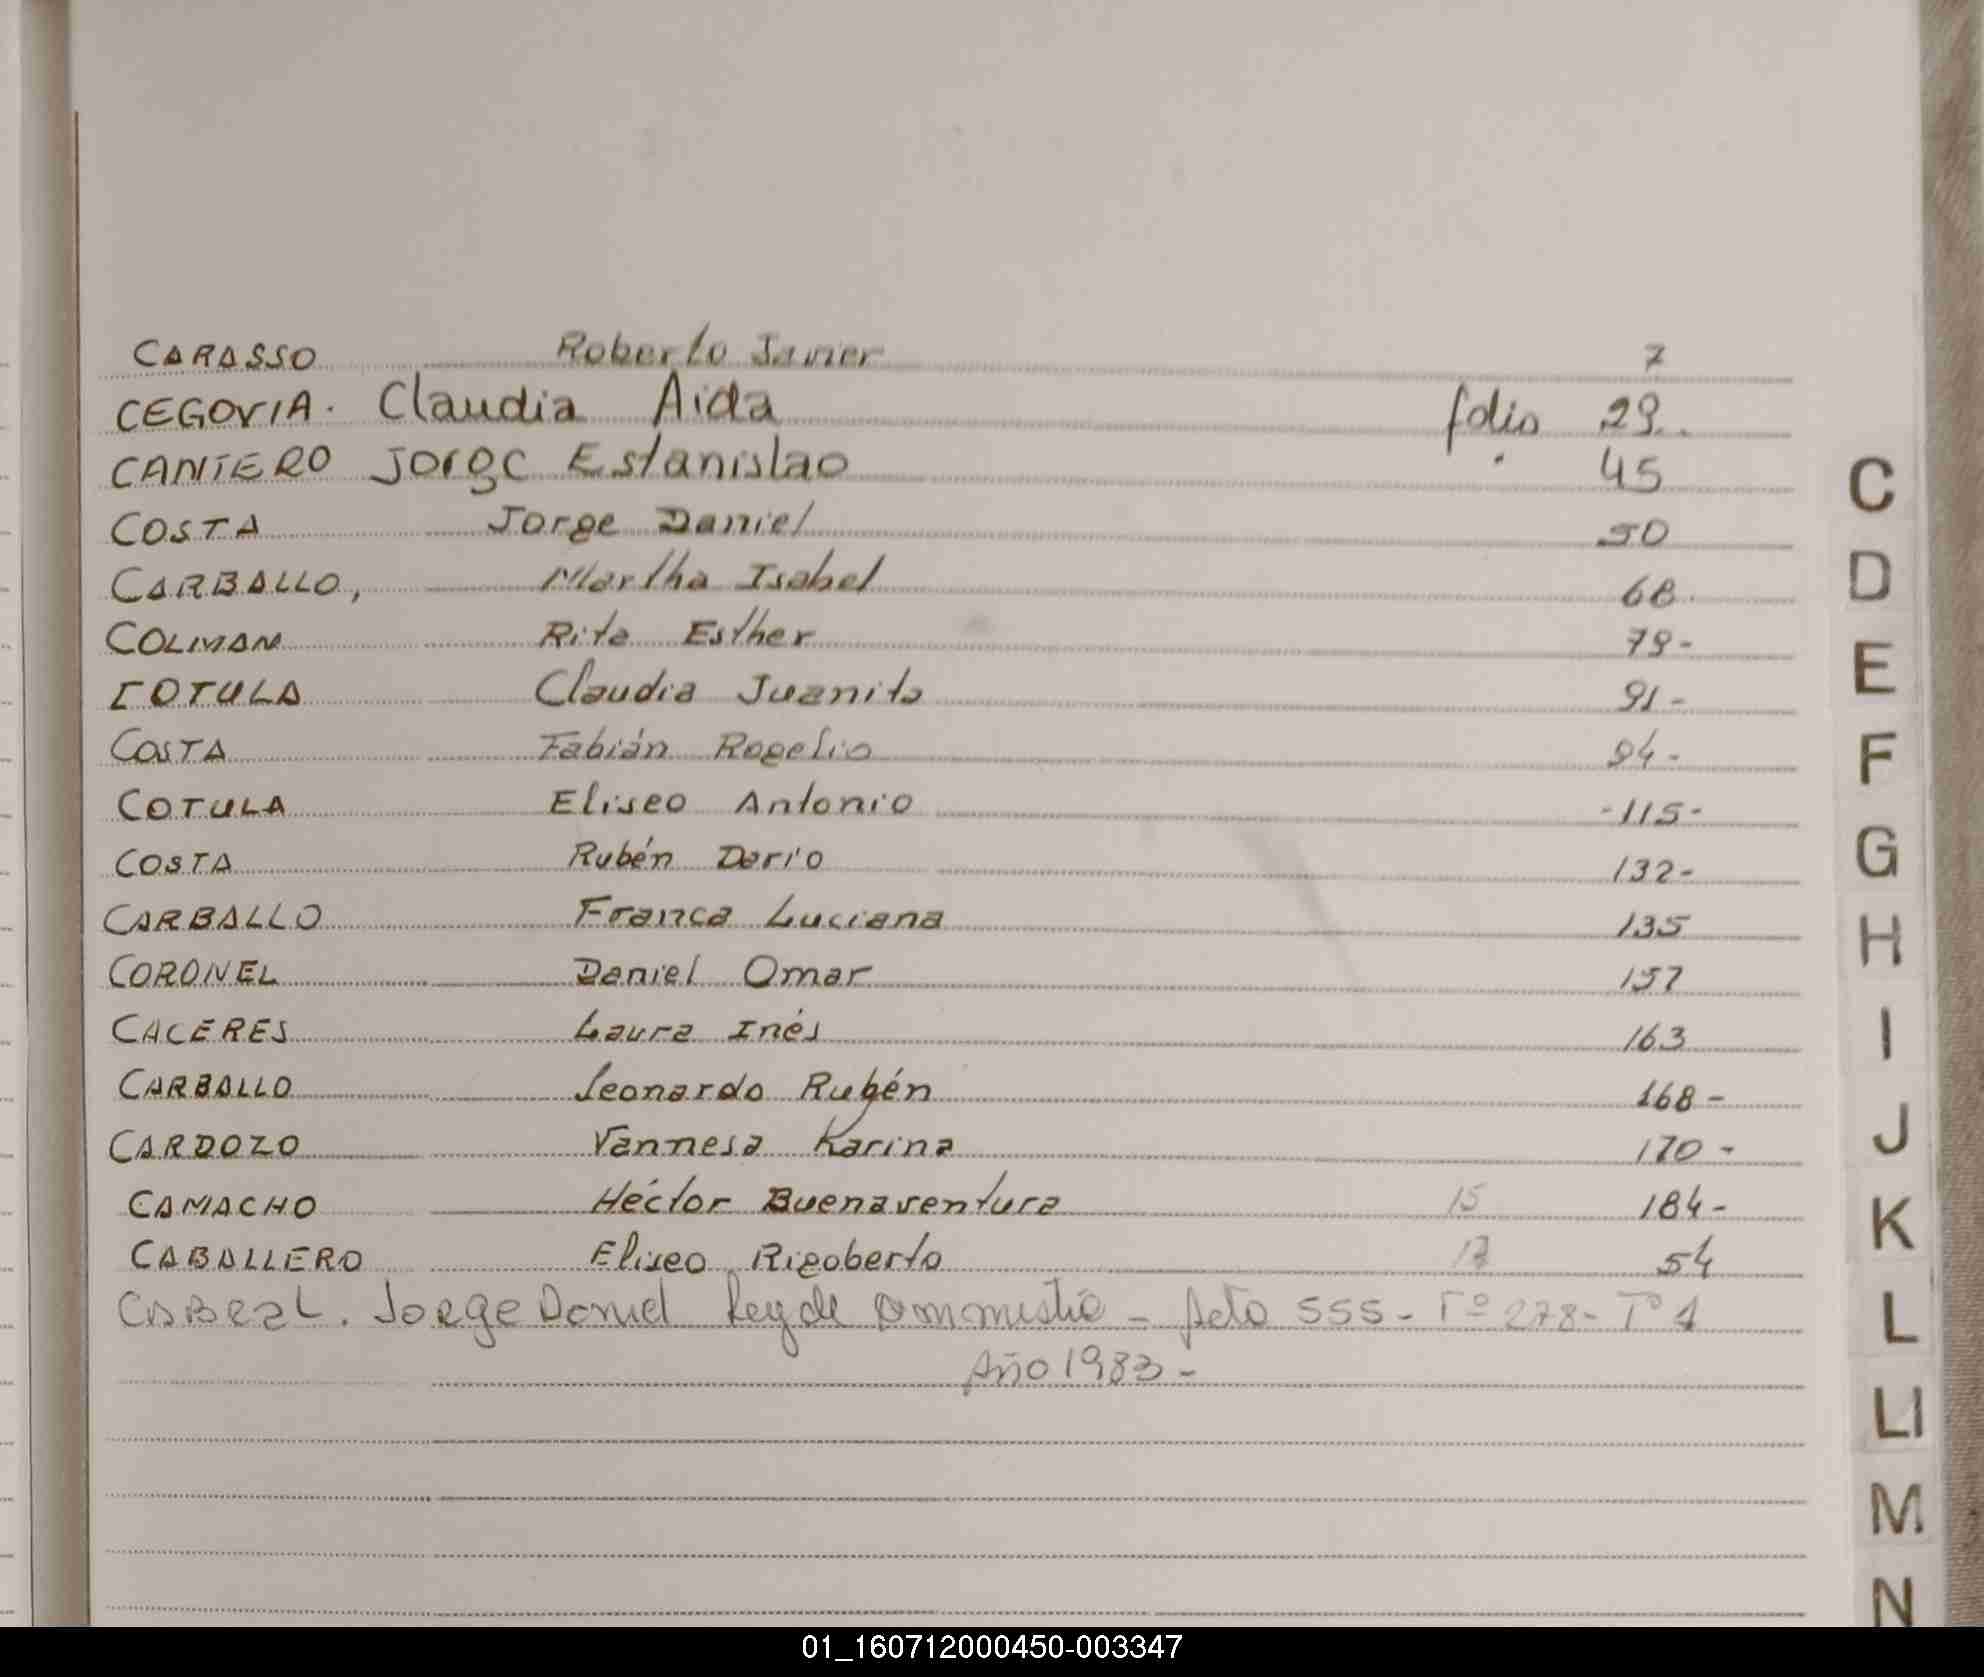 CARASSO Roberto Javier 7
CEGOVIA. Claudia Aida folio 29.
CANTERO Jorge Estanislao " 45
COSTA Jorge Daniel 50
CARBALLO, Martha Isabel 68
COLMAN Rita Esther 79-
COTULA Claudia Juanita 91-
COSTA Fabián Rogelio 94-
COTULA Eliseo Antonio -115-
COSTA Rubén Dario 132-
CARBALLO Franca Luciana 135
CORONEL Daniel Omar 157
CACERES Laura Inés 163
CARBALLO Leonardo Rubén 168-
CARDOZO Vannesa Karina 170-
CAMACHO Héctor Buenaventura 15 184-
CABALLERO Eliseo Rigoberto 54
CABRAL. Jorge Daniel Ley de Ammistia - Acta 555- Fº 278- Tº 1
Año 1983-
C
D
E
F
G
H
I
J
K
L
LL
M
N
01_160712000450-003347